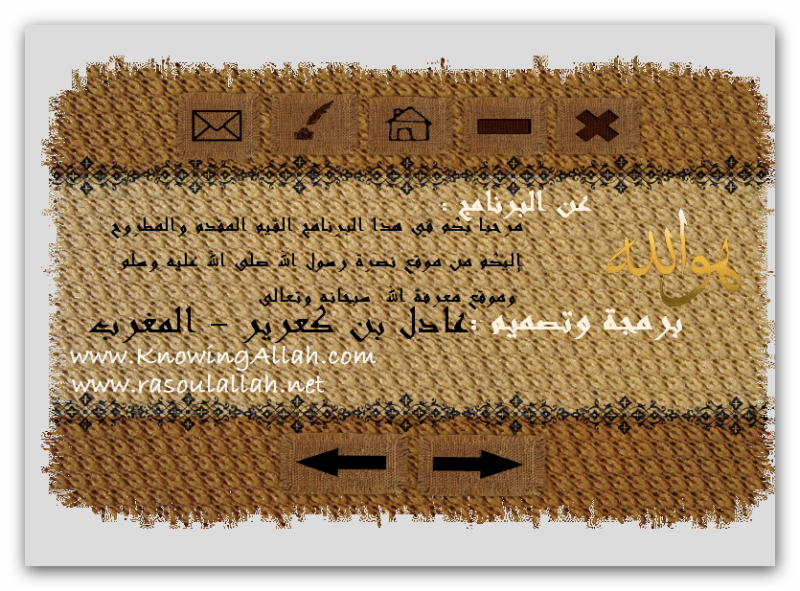 عن البرنامج :
مرحبا بكم في هذا البرنامج القيم المقدم والمطروح
إليكم من موقع نصرة رسول الله صلى الله عليه وسلم
وموقع معرفة الله سبحانه وتعالى
هو الله
برمجة وتصميم :عادل بن كعرير - المغرب
www.KnowingAllah.com
www.rasoulallah.net